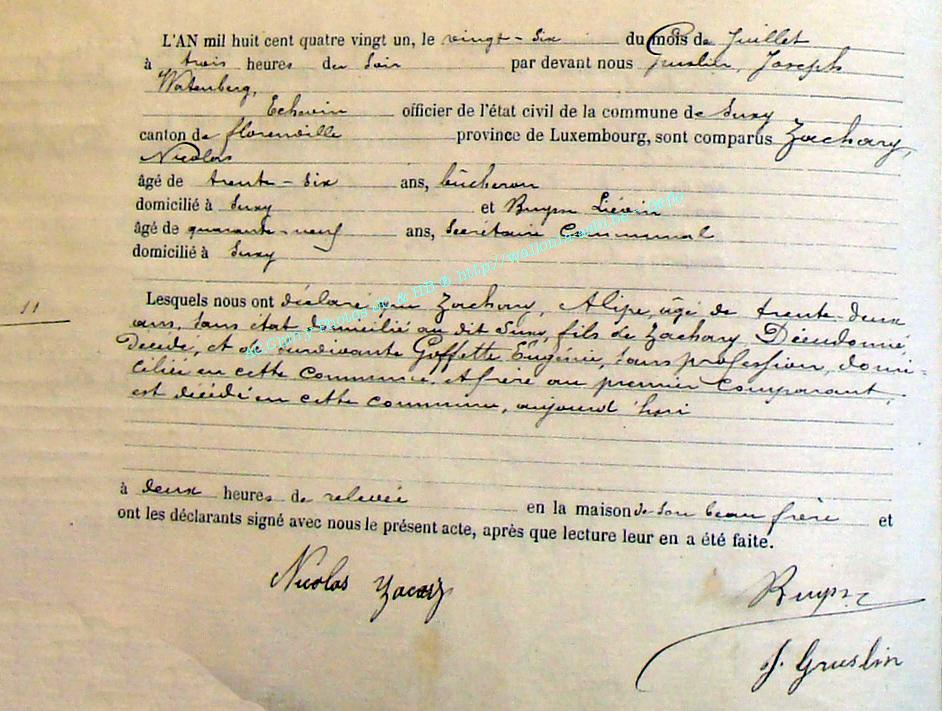 L'AN mil huit cent quatre vingt un, le vingt-six du mois de Juillet
à trois heures du soir par devant nous Gruslin, Joseph
Watenberg,
Echevin officier de l'état civil de la commune de Suxy
canton de florenville province de Luxembourg, sont comparus Zachary,
Nicolas
âgé de trente-six ans, bûcheron
domicilié à Suxy et Buysse Liévin
âgé de quarante-neuf ans, Secrétaire Communal
domicilié à Suxy
11
Lesquels nous ont déclaré que Zachary, Alipe, âgé de trente-deux
ans, sans état domicilié au dit Suxy, fils de Zachary Dieudonné,
décédé, et de survivante Goffette Eugénie, sans profession, domi-
ciliée en cette commune, et frère au premier comparant,
est décédé en cette commune, aujourd'hui
à deux heures de relevée en la maison de son beau frère et
ont les déclarants signé avec nous le présent acte, après que lecture leur en a été faite.
Nicolas Zacary
J. Gruslin
Photos & HB ® http://